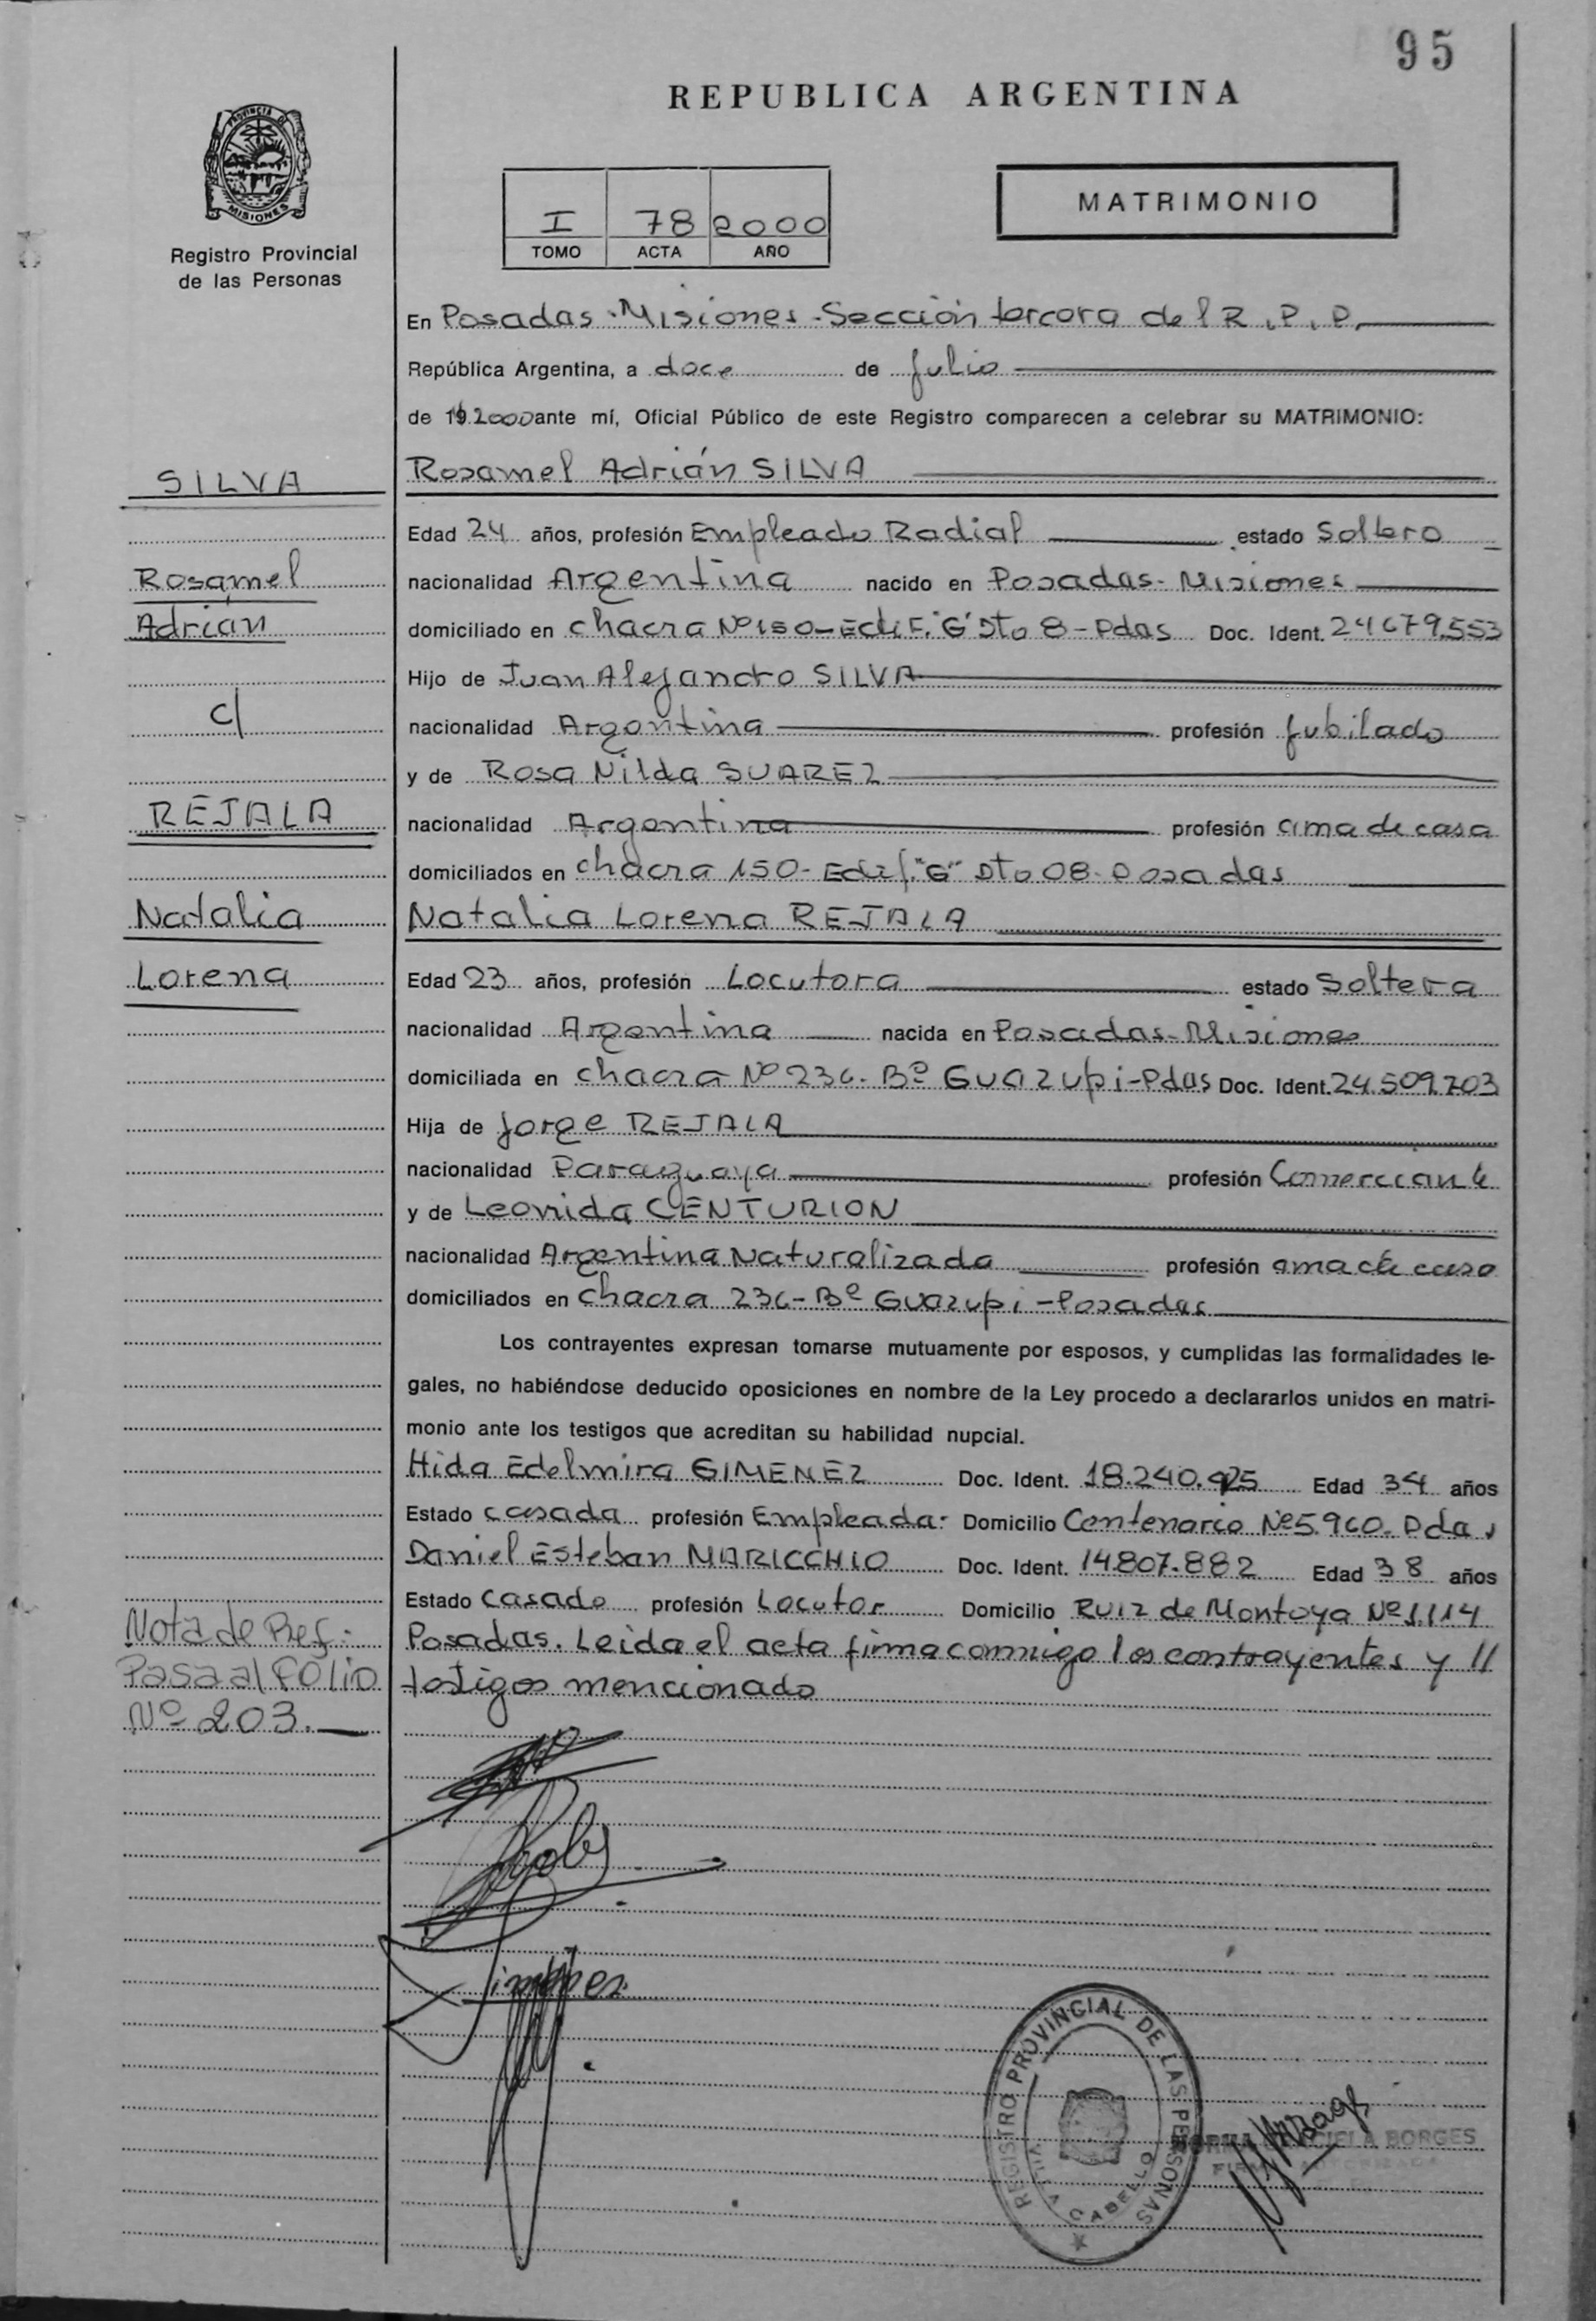 95
REPUBLICA ARGENTINA
PROVINCIA DE
MISIONES
Registro Provincial
de las Personas
I 78 2000
TOMO ACTA AÑO
MATRIMONIO
En Posadas-Misiones-Sección tercera del R.P.P.
República Argentina, a doce de julio
de 19 2000 ante mí, Oficial Público de este Registro comparecen a celebrar su MATRIMONIO:
SILVA
Rosamel Adrián SILVA
Edad 24 años, profesión Empleado Radial estado Soltero
Rosamel
nacionalidad Argentina nacido en Posadas-Misiones
Adrián
domiciliado en chacra Nº 150-Edif. "G" Dto 8-Pdas Doc. Ident. 24679.553
Hijo de Juan Alejandro SILVA
c/
nacionalidad Argentina profesión jubilado
y de Rosa Nilda SUAREZ
REJALA
nacionalidad Argentina profesión ama de casa
domiciliados en chacra 150-Edif. "G" Dto 08-Posadas
Natalia
Natalia Lorena REJALA
Lorena
Edad 23 años, profesión Locutora estado Soltera
nacionalidad Argentina nacida en Posadas-Misiones
domiciliada en chacra Nº 236-Bº Guazupi-Pdas Doc. Ident. 24.509.703
Hija de Jorge REJALA
nacionalidad Paraguaya profesión Comerciante
y de Leonida CENTURION
nacionalidad Argentina Naturalizada profesión ama de casa
domiciliados en chacra 236-Bº Guazupi-Posadas
Los contrayentes expresan tomarse mutuamente por esposos, y cumplidas las formalidades le-
gales, no habiéndose deducido oposiciones en nombre de la Ley procedo a declararlos unidos en matri-
monio ante los testigos que acreditan su habilidad nupcial.
Hida Edelmira GIMENEZ Doc. Ident. 18.240.925 Edad 34 años
Estado casada profesión Empleada. Domicilio Centenario Nº 5.960. Pdas
Daniel Esteban MARICCHIO Doc. Ident. 14.807.882 Edad 38 años
Estado casado profesión Locutor Domicilio Ruiz de Montoya Nº 1.114
Posadas. Leida el acta firma conmigo los contrayentes y //
testigos mencionado
Nota de Ref.:
Pasa al FOLIO
Nº 203.
REGISTRO PROVINCIAL DE LAS PERSONAS
VILLA CABELLO
NORMA GRACIELA BORGES
FIRMA AUTORIZADA